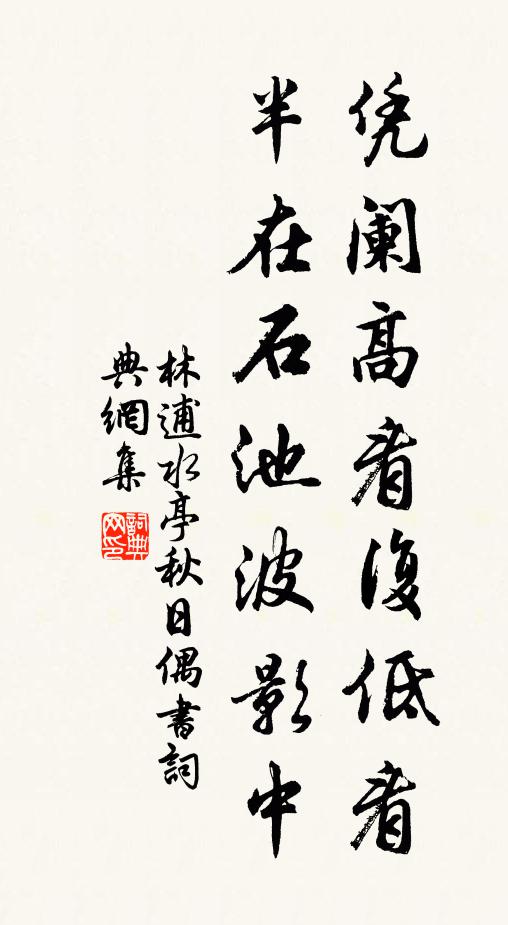 凭阑高看復低看
半在石池波影中
林逋水亭秋日偶書詞
典網集
詞典
网印